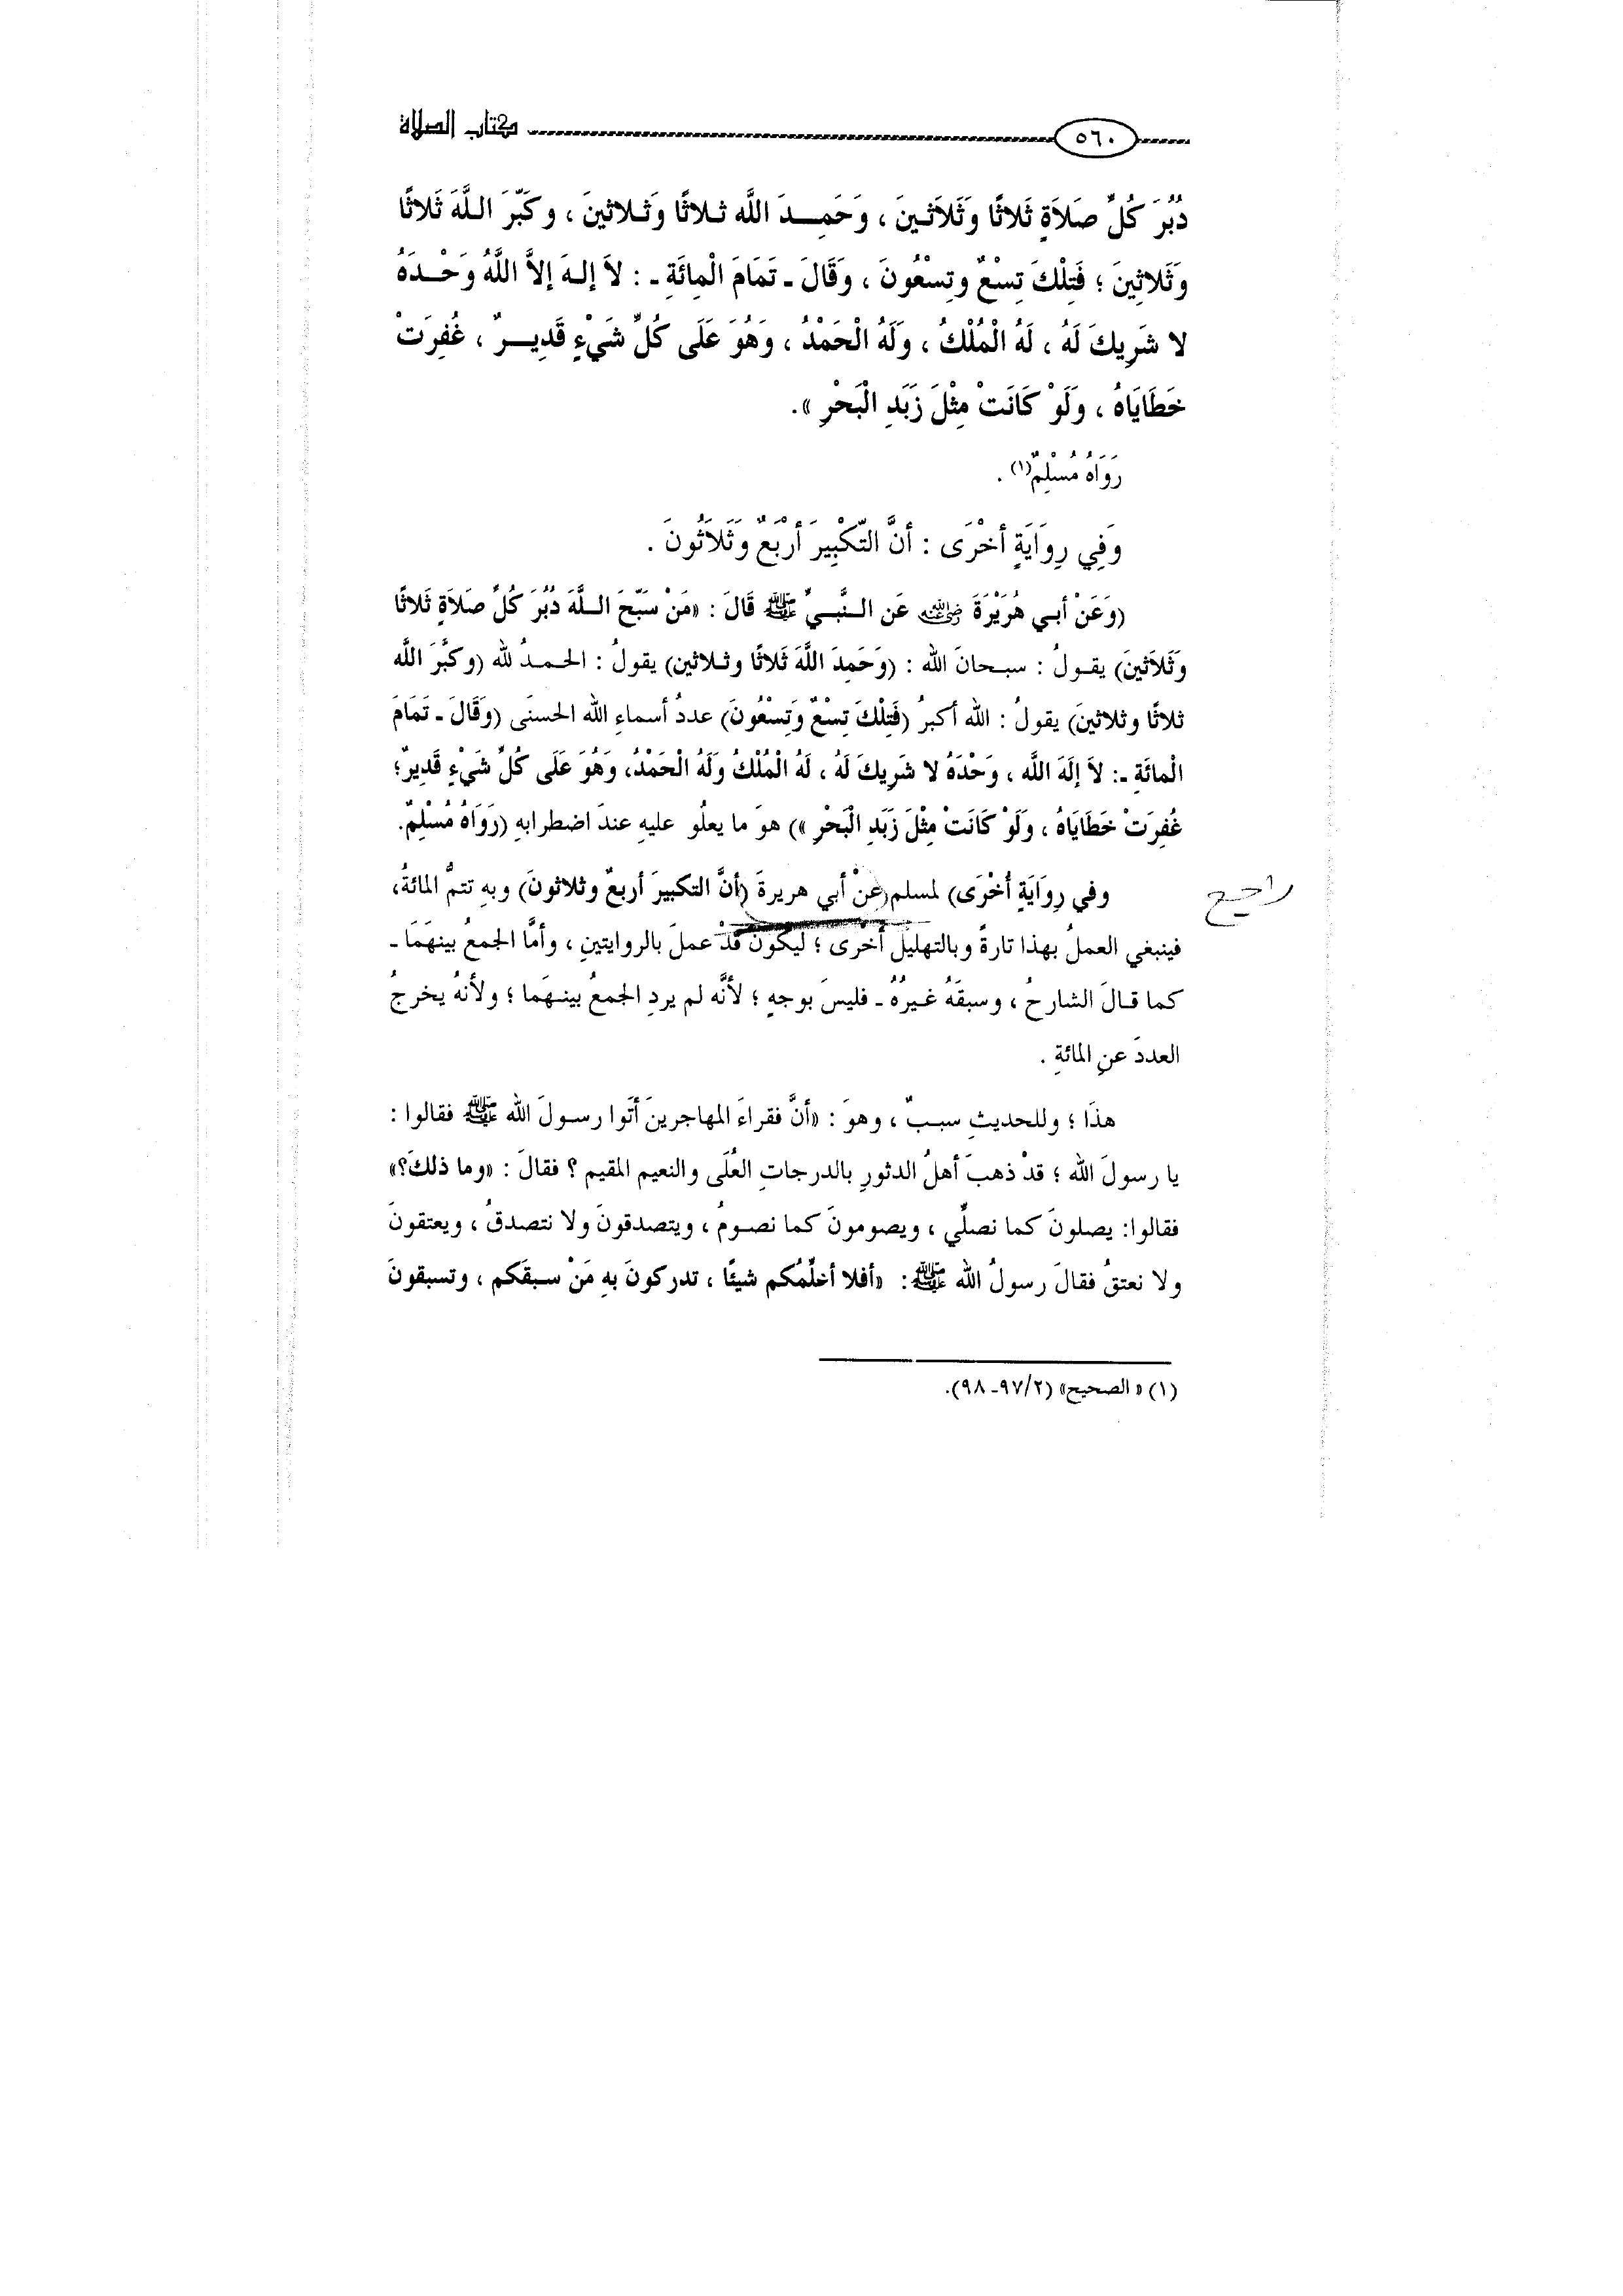 ٥٦٠ كتاب الصلاة
دُبُرَ كُلِّ صَلاَةٍ ثَلاثًا وَثَلاَثـينَ ، وَحَمِــدَ اللَّه ثـلاثًا وَثـلاثينَ ، وكَبَّرَ اللَّهَ ثَلاثًا
وَثَلاثِينَ ؛ فَتِلْكَ تِسْعٌ وتِسْعُونَ ، وَقَالَ ـ تَمَامَ الْمِائَةِ ـ : لاَ إلهَ إلاَّ اللَّهُ وَحْـدَهُ
لا شَرِيكَ لَهُ ، لَهُ الْمُلْكُ ، وَلَهُ الْحَمْدُ ، وَهُوَ عَلَى كُلِّ شَيْءٍ قَدِيــرٌ ، غُفِرَتْ
خَطَايَاهُ ، وَلَوْ كَانَتْ مِثْلَ زَبَدِ الْبَحْرِ ».
رَوَاهُ مُسْلِمٌ(١) .
وَفِي رِوَايَةٍ أخْرَى : أنَّ التَّكْبِيرَ أرْبَعٌ وَثَلاَثُونَ .
(وَعَنْ أبـي هُرَيْرَةَ رضي الله عنه عَن النَّبـيِّ ﷺ قَالَ : «مَنْ سَبَّحَ اللَّهَ دُبُرَ كُلِّ صَلاَةٍ ثَلاثًا
وَثَلاَثينَ) يقـولُ : سبـحانَ الله : (وَحَمِدَ اللَّهَ ثَلاثًا وثـلاثين) يقولُ : الحـمدُ لله (وكبَّرَ اللَّه
ثلاثًا وثلاثينَ) يقولُ : الله أكبرُ (فَتِلْكَ تِسْعٌ وَتِسْعُونَ) عددُ أسماءِ الله الحسنَى (وَقَالَ ـ تَمَامَ
الْمائَةِ ـ: لاَ إلَهَ اللَّه ، وَحْدَهُ لا شَرِيكَ لَهُ ، لَهُ الْمُلْكُ وَلَهُ الْحَمْدُ، وَهُوَ عَلَى كُلِّ شَيْءٍ قَدِيرٌ؛
غُفِرَتْ خَطَايَاهُ ، وَلَوْ كَانَتْ مِثْلَ زَبَدِ الْبَحْرِ ») هوَ ما يعلُو عليهِ عندَ اضطرابهِ (رَوَاهُ مُسْلِمٌ.
وفي رِوَايَةٍ أُخْرَى) لمسلم(عنْ أبي هريرةَ (أنَّ التكبيرَ أربعٌ وثلاثونَ) وبهِ تتمُّ المائةُ،
راجع
فينبغي العملُ بهذا تارةً وبالتهليل أخْرى ؛ ليكونَ قدْ عملَ بالروايتينِ ، وأمَّا الجمعُ بينهَمَا ـ
كما قـالَ الشارحُ ، وسبقَهُ غـيرُهُ ـ فليسَ بوجهٍ ؛ لأنَّه لم يردِ الجمعُ بينـهَما ؛ ولأنهُ يخرجُ
العددَ عنِ المائةِ .
هذَا ؛ وللحديثِ سببٌ ، وهوَ : «أنَّ فقراءَ المهاجرينَ أتَوا رسـولَ الله ﷺ فقالوا :
يا رسولَ الله ؛ قدْ ذهبَ أهلُ الدثورِ بالدرجاتِ العُلَى والنعيم المقيم ؟ فقالَ : «وما ذلكَ؟»
فقالوا: يصلونَ كما نصلِّي ، ويصومونَ كما نصـومُ ، ويتصدقونَ ولا نتصدقُ ، ويعتقونَ
ولا نعتقُ فقالَ رسولُ الله ﷺ: «أفلا أخلِّمُكم شيئًا ، تدركونَ بهِ مَنْ سبقَكم ، وتسبقونَ
(١) « الصحيح» (٢/ ٩٧ـ ٩٨).